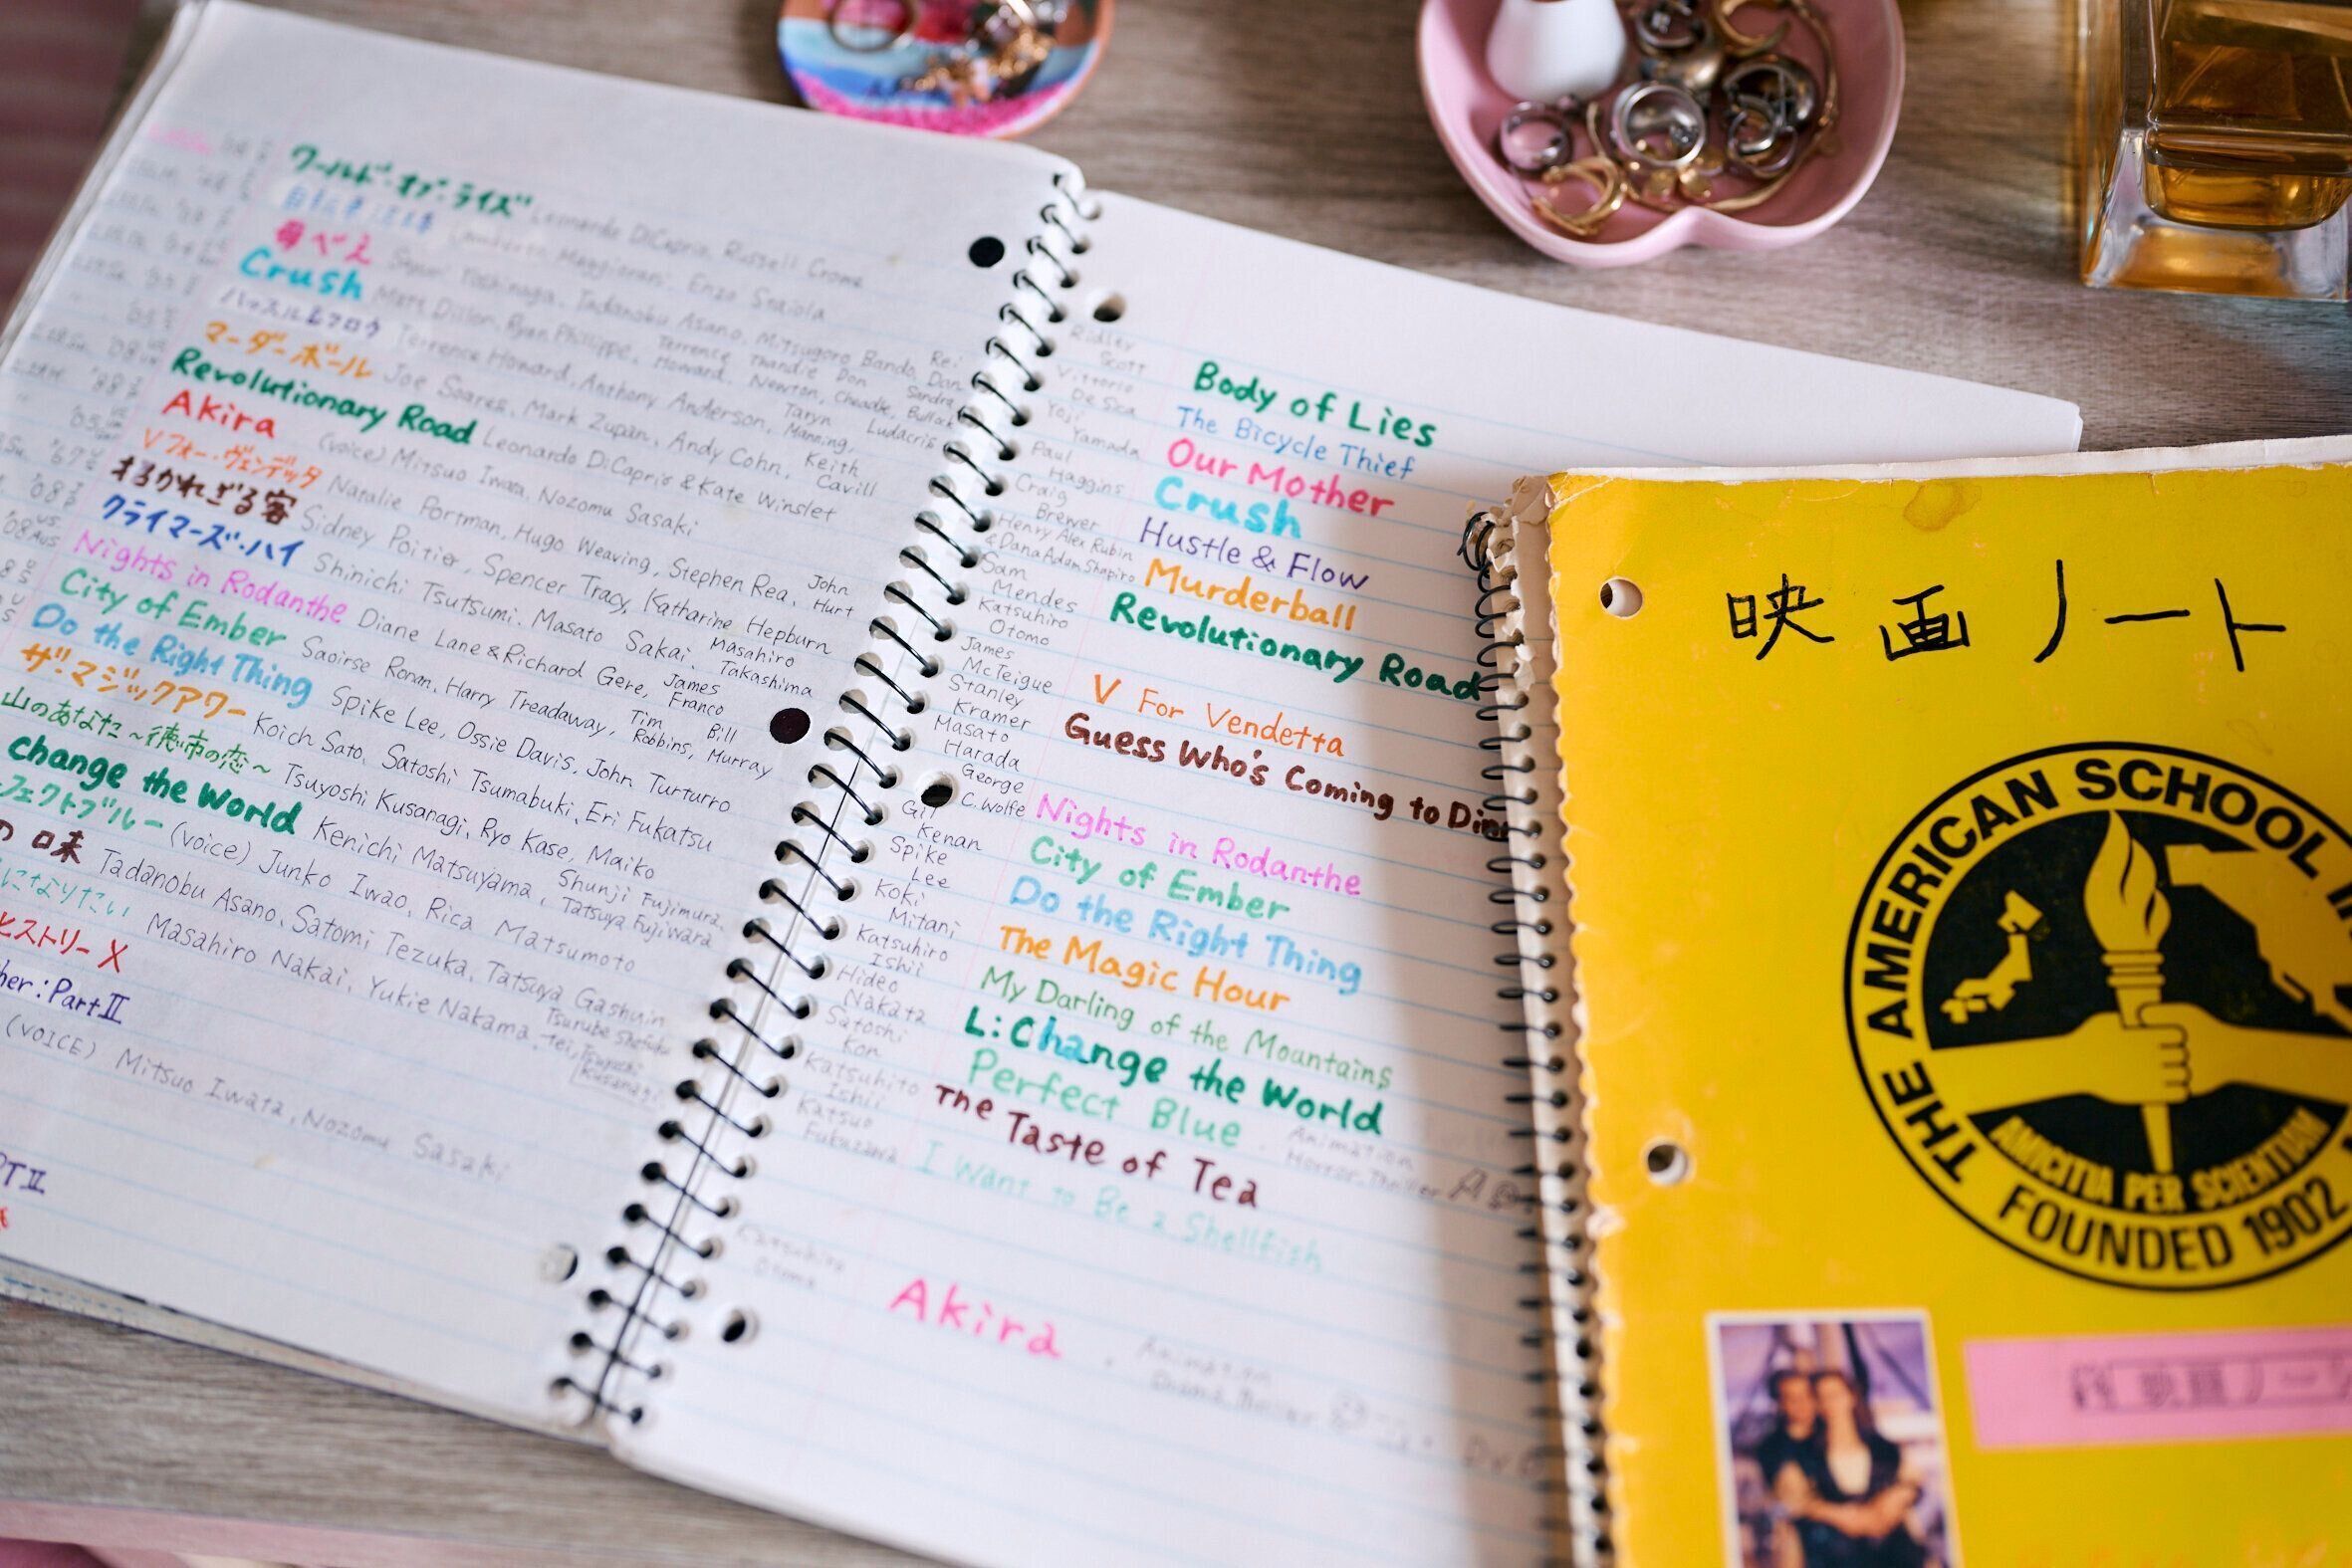 ワールド・オブ・ライズ Leonardo DiCaprio, Russell Crowe
自転車泥棒 Lamberto Maggiorani, Enzo Staiola
母べえ Sayuri Yoshinaga, Tadanobu Asano, Mitsugoro Bando
Crush Matt Dillon, Ryan Phillippe, Terrence Howard, Thandie Newton, Don Cheadle, Sandra Bullock
ハッスル&フロウ Terrence Howard, Anthony Anderson, Taryn Manning, Ludacris
マーダーボール Joe Soares, Mark Zupan, Andy Cohn, Keith Cavill
Revolutionary Road Leonardo DiCaprio & Kate Winslet
Akira (voice) Mitsuo Iwata, Nozomu Sasaki
Vフォー・ヴェンデッタ Natalie Portman, Hugo Weaving, Stephen Rea, John Hurt
まねかれざる客 Sidney Poitier, Spencer Tracy, Katharine Hepburn
クライマーズ・ハイ Shinichi Tsutsumi, Masato Sakai, Masahiro Takashima
Nights in Rodanthe Diane Lane & Richard Gere, James Franco
City of Ember Saoirse Ronan, Harry Treadaway, Tim Robbins, Bill Murray
Do the Right Thing Spike Lee, Ossie Davis, John Turturro
ザ・マジックアワー Koich Sato, Satoshi Tsumabuki, Eri Fukatsu
山のあなた~徳市の恋~ Tsuyoshi Kusanagi, Ryo Kase, Maiko
Change the World Kenichi Matsuyama, Shunji Fujimura, Tatsuya Fujiwara
フェクトブルー (voice) Junko Iwao, Rica Matsumoto
の味 Tadanobu Asano, Satomi Tezuka, Tatsuya Gashuin
になりたい Masahiro Nakai, Yukie Nakama, Tsuyoshi Kusanagi
ヒストリーX
her: Part II
(VOICE) Mitsuo Iwata, Nozomu Sasaki
PT II
Ridley Scott Body of Lies
Vittorio De Sica The Bicycle Thief
Yoji Yamada Our Mother
Paul Haggins Crush
Craig Brewer Hustle & Flow
Henry Alex Rubin & Dana Adam Shapiro Murderball
Sam Mendes Revolutionary Road
Katsuhiro Otomo
James McTeigue V For Vendetta
Stanley Kramer Guess Who's Coming to Dinn
Masato Harada
George C. Wolfe Nights in Rodanthe
Gil Kenan City of Ember
Spike Lee Do the Right Thing
Koki Mitani The Magic Hour
Katsuhiro Ishii My Darling of the Mountains
Hideo Nakata L: Change the World
Satoshi Kon Perfect Blue . Animation Horror Thriller
Katsuhito Ishii The Taste of Tea
Katsuo Fukuzawa I Want to Be a Shellfish
Katsuhiro Otomo Akira . Animation
映画ノート
THE AMERICAN SCHOOL I
AMICITIA PER SCIENTIAM
FOUNDED 1902
映画ノート